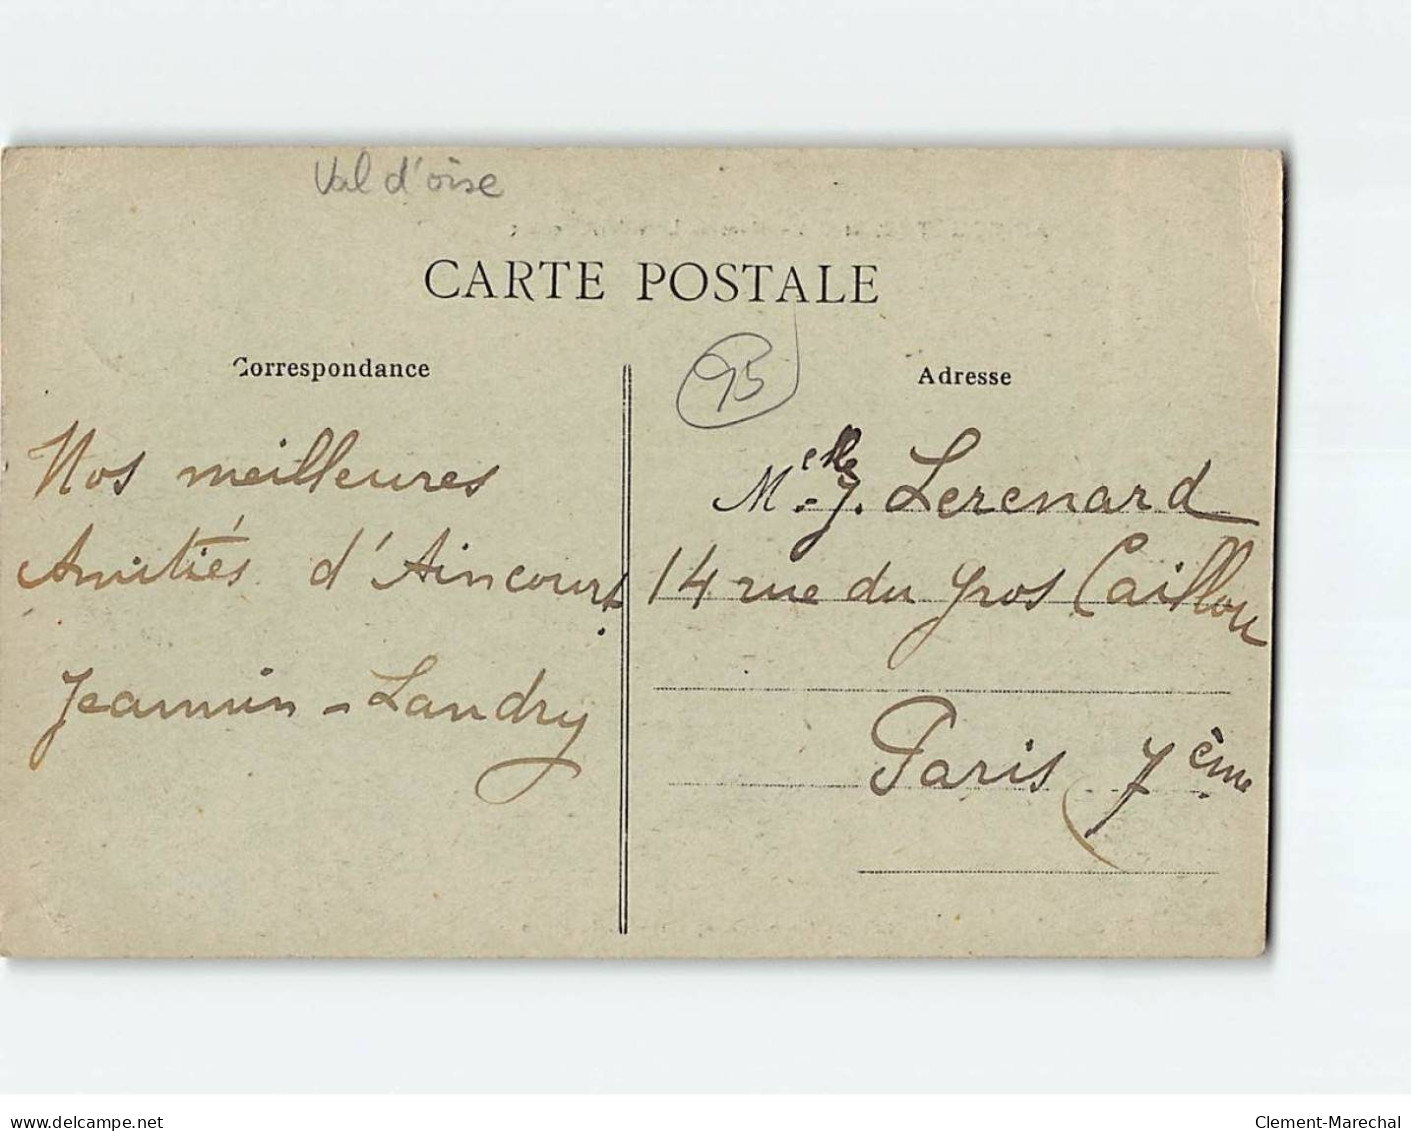 Val d'oise
CARTE POSTALE
Correspondance
95
Adresse
Nos meilleures
Amitiés d'Aincourt.
Jeannin - Landry
Melle J. Lerenard
14 rue du Gros Caillou
Paris 7ème
www.delcampe.net
Clement-Marechal